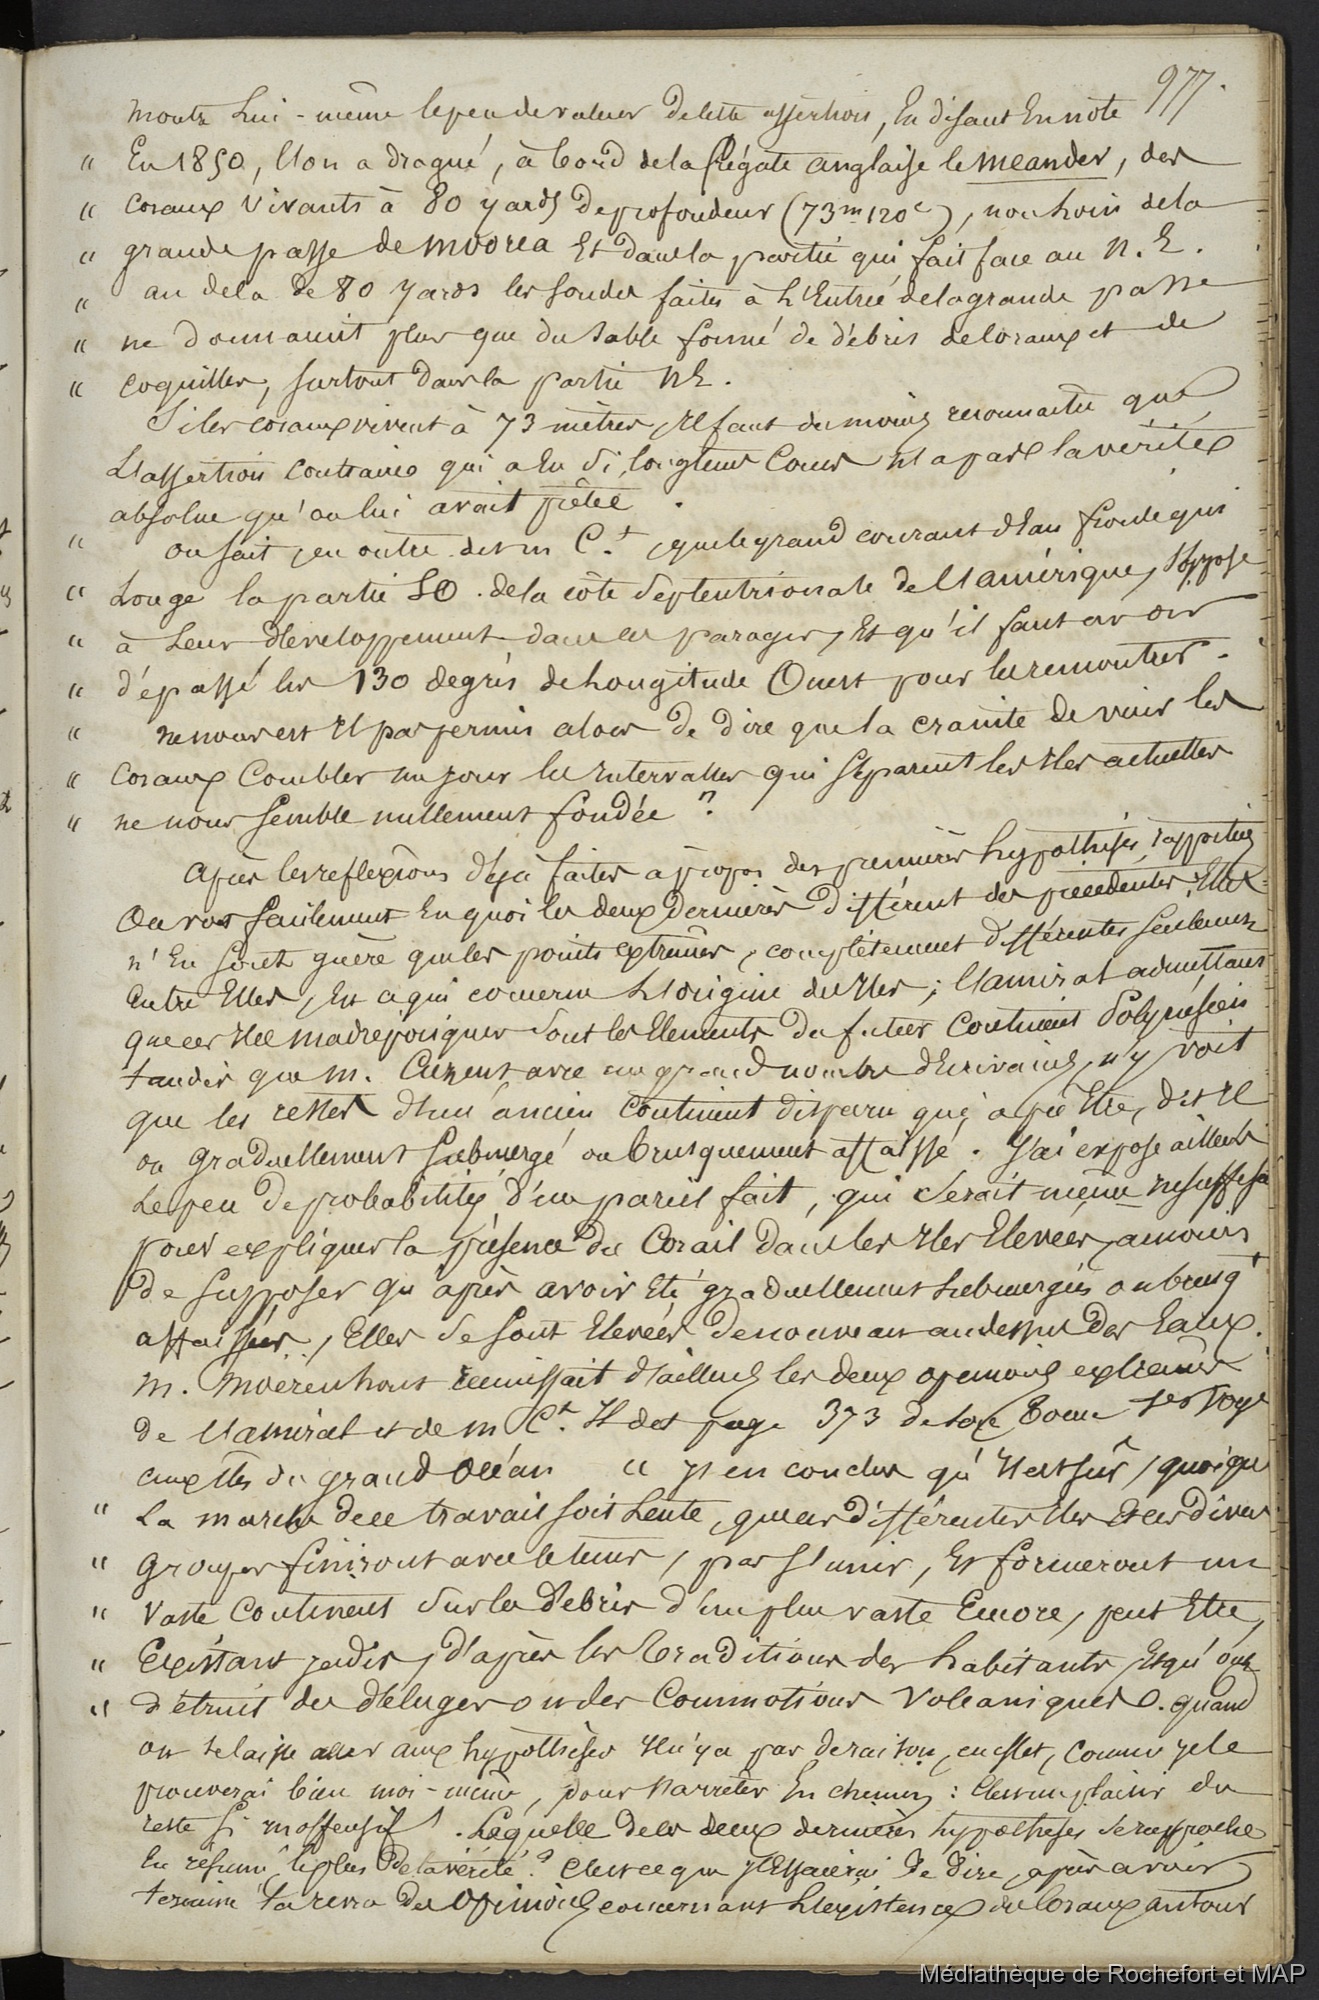 977.
montre Lui-même le peu de valeur de cette assertion, En disant En note
" En 1850, l'on a dragué, à bord de la frégate anglaise le Meander, des
" coraux vivants à 80 yards de profondeur (73m 120c), non loin de la
" grande passe de Moorea Et dans la partie qui fait face au N. E.
" au dela de 80 yards les sondes faites à L'Entrée de la grande passe
" ne donnaient plus que du sable formé de débris de Coraux et de
" coquilles, surtout dans la partie NE.
Si les coraux vivent à 73 mètres, Il faut du moins reconnaitre que
L'assertion contraire qui a Eu Si longtems Cours N'a pas la vérité
absolue qu'on lui avait prêtée.
" On sait, en outre dit m C.t, que le grand courant d'Eau froide qui
" Longe la partie SO. de la côte Septentrionale de l'amérique, s'oppose
" à Leur développement dans ces parages, Et qu'il faut avoir
" dépassé les 130 degrés de Longitude Ouest pour les remontrer.
" ne nous est Il pas permis alors de dire que la crainte de voir les
" Coraux Combler un jour les Intervalles qui séparent les Iles actuelles
" ne nous semble nullement fondée ?
Après les reflexions déjà faites a propos des premières hypothèses rapportées
On voit facilement En quoi les deux dernières diffèrent des précédentes. Elles
n'En sont guère que les points extrêmes, complètement différentes seulement
Entre Elles, En ce qui concerne L'origine des Iles ; l'amiral admettant
que ces Iles madréporiques sont les Elements du futur Continent Polynésien
tandis que m. Cuzent avec un grand nombre d'Ecrivains, n'y voit
que les restes d'un ancien Continent disparu qui a pu Etre, dit Il
ou graduellement Submergé ou brusquement affaissé. J'ai exposé ailleurs
Le peu de probabilité d'un pareil fait, qui serait même insuffisant
pour expliquer la présence du Corail dans les Iles Elevées, a moins
de supposer qu'après avoir Eté graduellement Submergées ou brusqt
affaissées, Elles se sont Elevées de nouveau au dessus des Eaux.
M. Moerenhout réunissait d'ailleurs les deux opinions extrêmes
de l'amiral et de m Ct. Il dit page 373 de son Tome 1er Voyage
aux Iles du grand Océan " J'en conclus qu'Il est sûr, quoique
" La marche de ce travail soit Lente, que ces différentes Iles Et ces divers
" groupes finiront avec le tems, par s'unir, Et formeront un
" vaste Continent Sur les débris d'un plus vaste Encore, peut Etre,
" Existant jadis, d'après les traditions des habitants, Et qu'ont
" détruit des déluges ou des Commotions Volcaniques. quand
on se laisse aller aux hypothèses Il n'y a pas de raison, en effet, comme je le
prouverai bien moi-même, pour s'arrêter En chemin : C'est un plaisir du
reste si inoffensif ! Laquelle de ces deux dernières hypothèses se rapproche
En résumé le plus de la vérité ? C'est ce que j'Essaierai de dire, après avoir
terminé la revue des Opinions concernant L'existence des Coraux autour